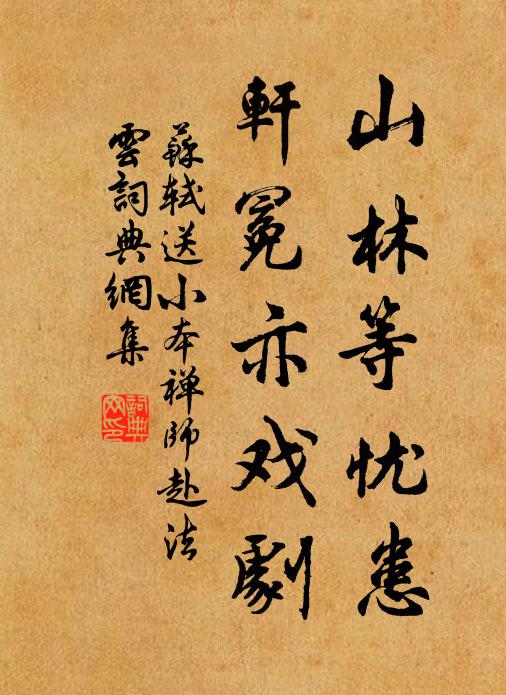 山林等忧患
軒冕亦戏劇
蘇軾送小本禅師赴法
雲詞典網集
詞典网印